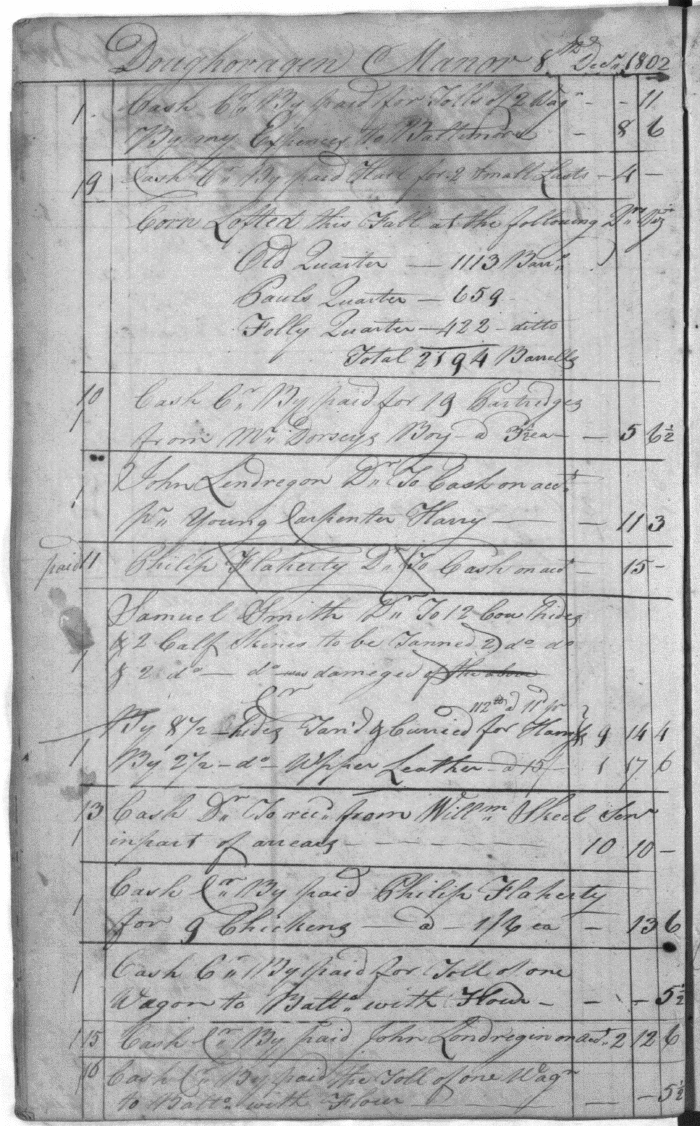 Doughoragen Manor 8th Decr 1802
1 Cash Cr By paid for Tolls of 2 Wagns - - 11
By my Expences to Baltimore - 8 6
9 Cash Cr By paid for 2 Small - 4 -
Corn Lofted this Fall at the following
Old Quarter — 1113 Barrs
Pauls Quarter — 659
Folly Quarter — 422 - ditto
Total 2194 Barrells
10 Cash Cr By paid for 19 Partridges
from Mr Dorseys Boy a 3½ ea — 5 6½
John Lendregon Dr To Cash on acct
pr Young Carpenter Harry — — 11 3
paid 11 Philip Flaherty Dr To Cash on acct - 15 -
Samuel Smith Dr To 12 Cow Hides
& 2 Calf Skines to be Tanned 2 do do
& 2 do — do was damaged of the above
Cr
112 lb a
By 8½ Hides Tan'd & Curried for Harness 9 14 4
By 2½ - do - Upper Leather - a 15/ 1 17 6
13 Cash Dr To recd from Willm Senr
in part of arrears - - - - 10 10 -
Cash Cr By paid Philip Flaherty
for 9 Chickens — a — 1/6 ea - 13 6
Cash Cr By paid for Toll of one
Wagon to Balto with Flour - - - 5½
15 Cash Cr By paid John Londregin on acct 2 12 6
16 Cash Cr By paid the Toll of one Wagn
to Balto with Flour — - - 5½